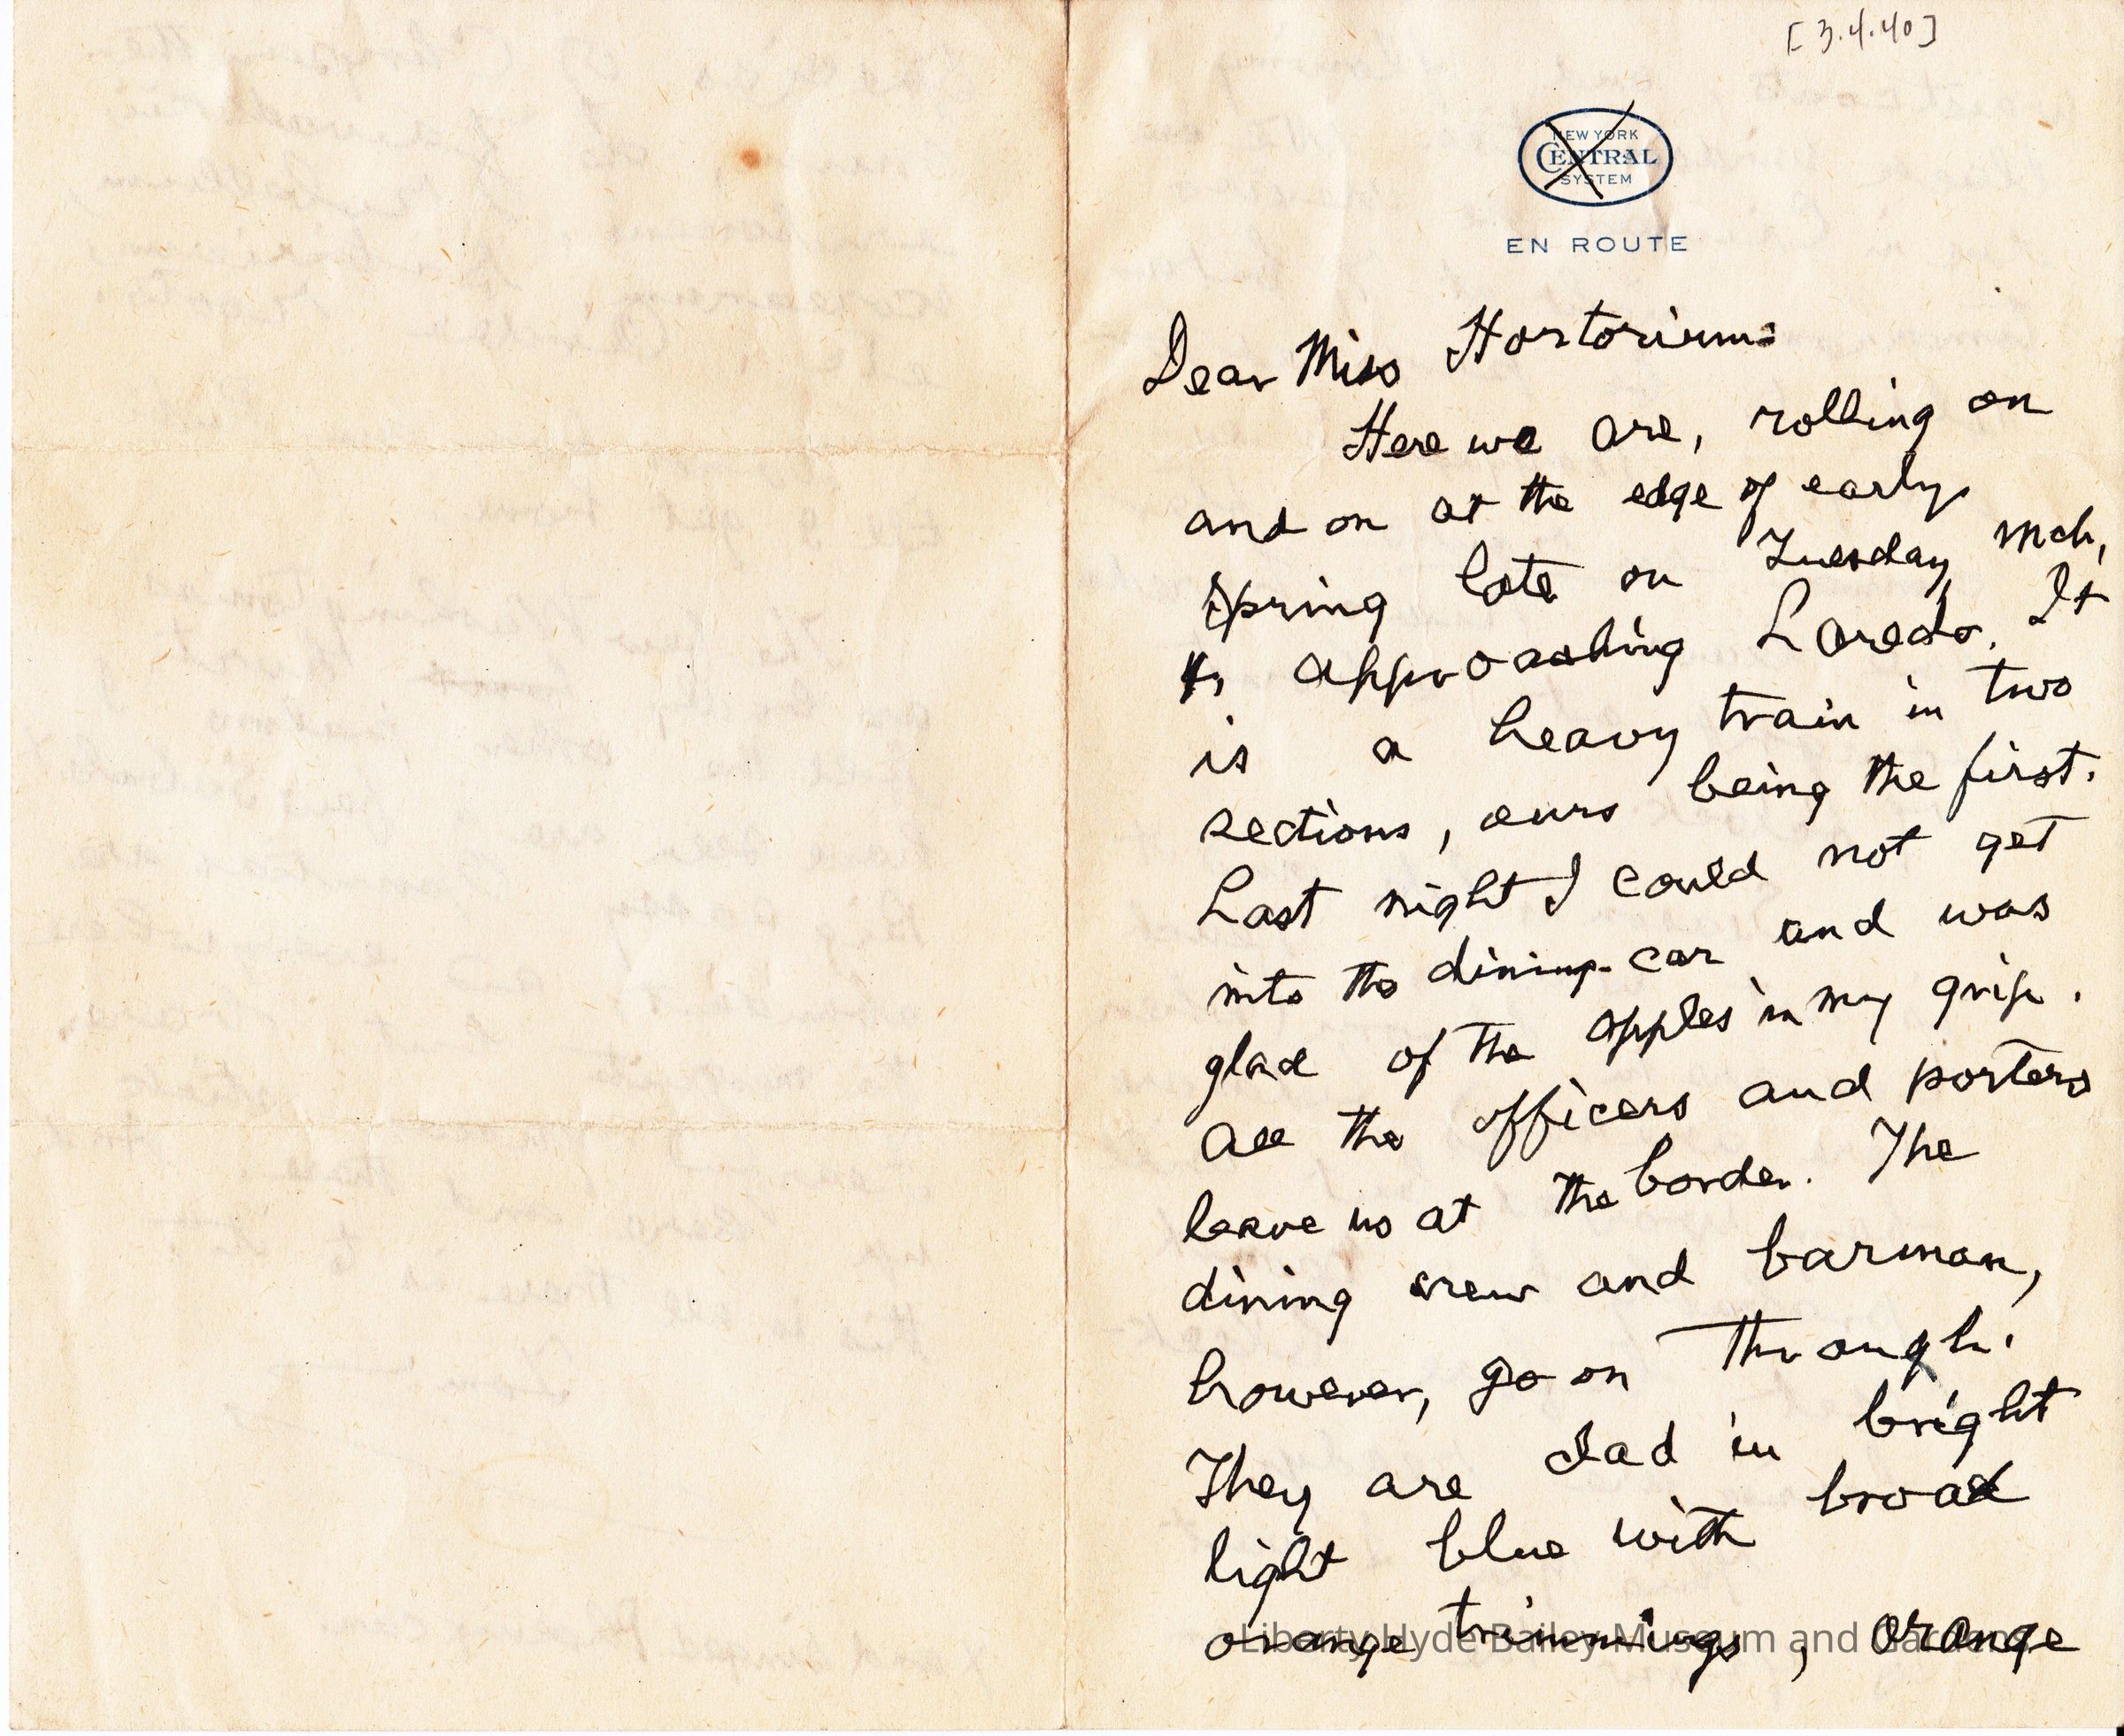 [3.4.40]
NEW YORK
CENTRAL
SYSTEM
EN ROUTE
Dear Miss Hortorium:
Here we are, rolling on
and on at the edge of early
spring late on Tuesday, Mch,
4, approaching Laredo. It
is a heavy train in two
sections, ours being the first.
Last night I could not get
into the dining-car and was
glad of the apples in my grip.
All the officers and porters
leave us at the border. The
dining crew and barman,
however, go on through.
They are clad in bright
light blue with broad
orange trimmings, orange
Liberty Hyde Bailey Museum and Gardens